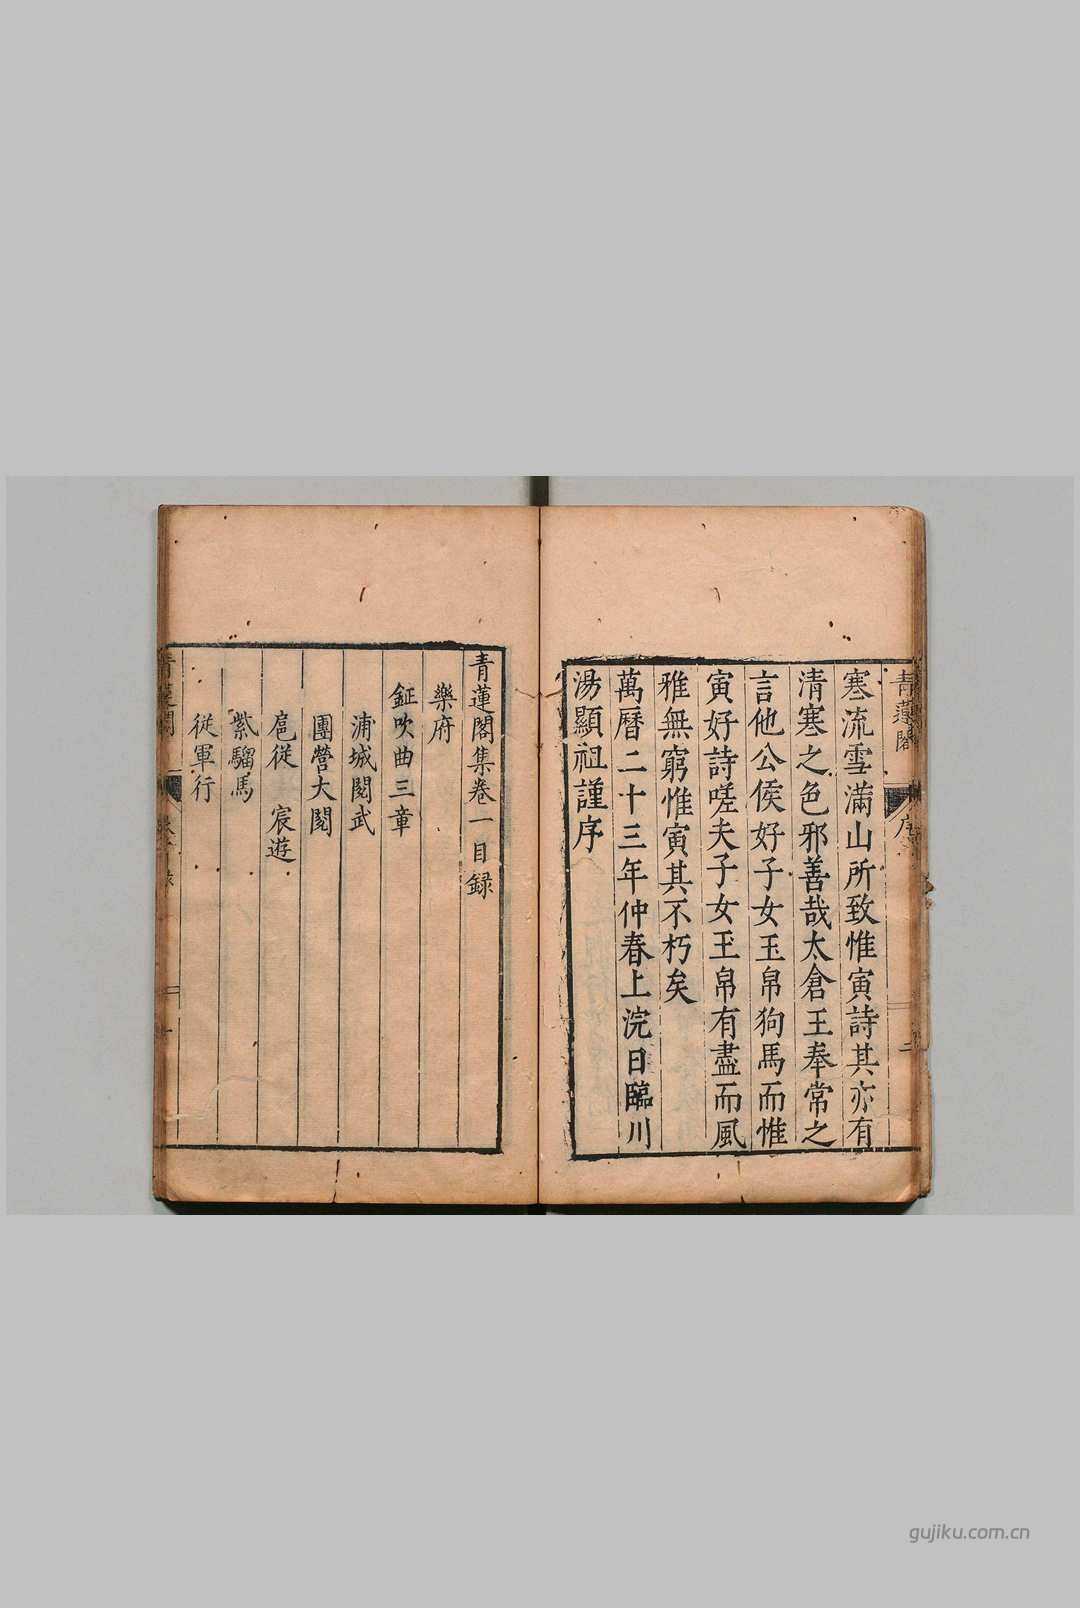 青蓮閣
序
二
寒流雪滿山所致惟寅詩其亦有
清寒之色邪善哉太倉王奉常之
言他公侯好子女玉帛狗馬而惟
寅好詩嗟夫子女玉帛有盡而風
雅無窮惟寅其不朽矣
萬曆二十三年仲春上浣日臨川
湯顯祖謹序
青蓮閣集卷一目録
樂府
鉦吹曲三章
浦城閱武
團營大閱
扈從 宸遊
紫騮馬
從軍行
青蓮閣
gujiku.com.cn